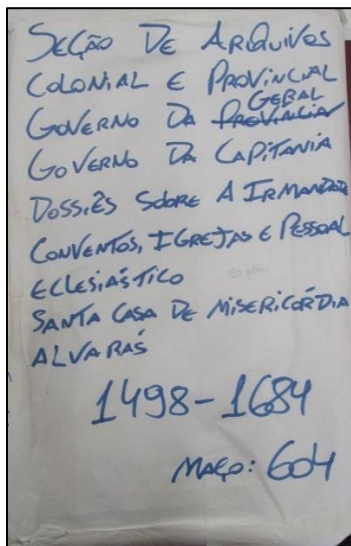 SEÇÃO DE ARQUIVOS
COLONIAL E PROVINCIAL
GERAL
GOVERNO DA PROVINCIA
GOVERNO DA CAPITANIA
DOSSIÊS SOBRE A IRMANDADE
CONVENTOS, IGREJAS E PESSOAL
ECLESIÁSTICO
SANTA CASA DE MISERICÓRDIA
ALVARÁS
1498-1684
MAÇO: 604